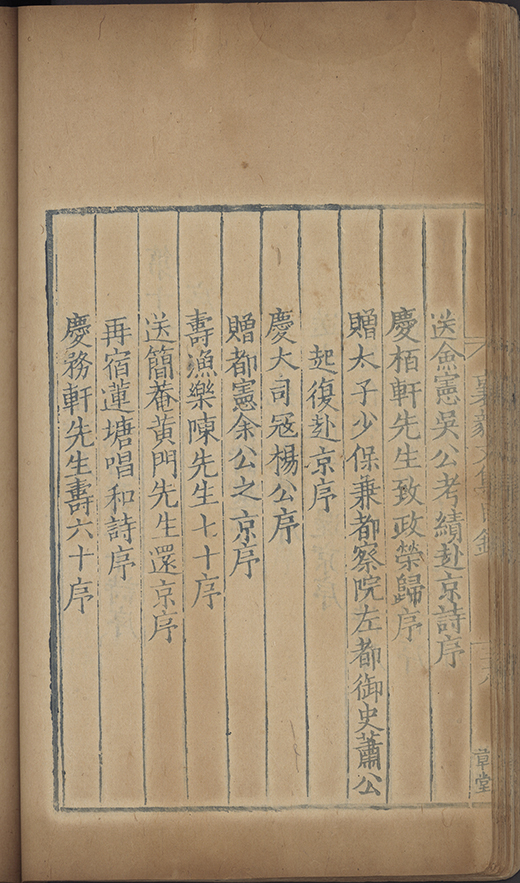 送僉憲吳公考績赴京詩序
慶栢軒先生致政榮歸序
贈太子少保兼都察院左都御史蕭公
起復赴京序
慶大司冦楊公序
贈都憲余公之京序
壽漁樂陳先生七十序
送簡菴黃門先生還京序
再宿蓮塘唱和詩序
慶務軒先生壽六十序
草堂